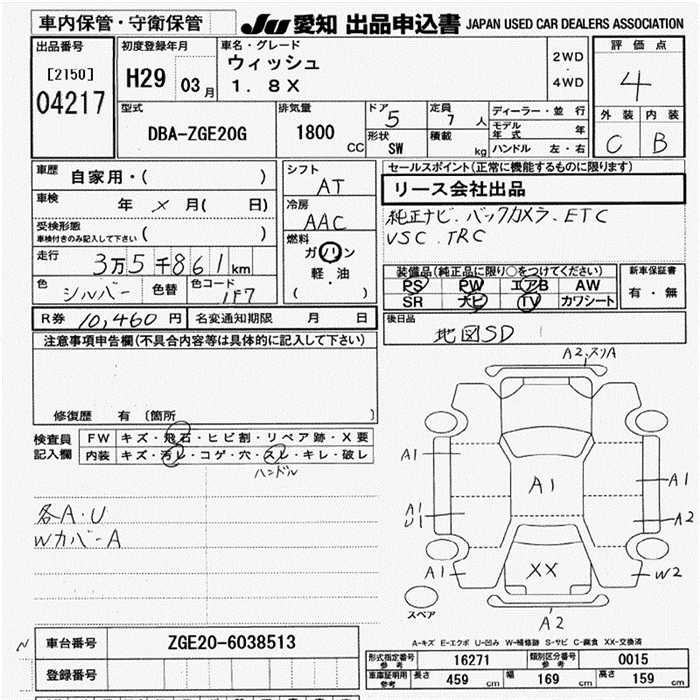 車内保管・守衛保管
JU 愛知 出品申込書 JAPAN USED CAR DEALERS ASSOCIATION
出品番号
[2150]
04217
初度登録年月
H29 03月
車名・グレード
ウィッシュ
1.8X
2WD
・
4WD
評価点
4
外装 内装
C B
型式
DBA-ZGE20G
排気量
1800 CC
ドア 5
形状 SW
定員 7 人
積載 kg
ディーラー・並行
モデル年式 年
ハンドル 左・右
車歴 自家用・( )
車検 年 メ 月( 日)
受検形態
車検付きのみ記入して下さい ( )
走行 3万5千861km
色 シルバー 色替 色コード 1F7
シフト
AT
冷房
AAC
燃料
ガソリン
軽・油
( )
セールスポイント(正常に機能するものに限ります)
リース会社出品
純正ナビ、バックカメラ、ETC
VSC、TRC
装備品(純正品に限り○をつけてください)
PS PW エアB AW
SR ナビ TV カワシート
新車保証書
有・無
後日品
地図SD
R券 10,460円 名変通知期限 月 日
注意事項申告欄(不具合内容等は具体的に記入して下さい)
修復歴 有 〔箇所 〕
検査員
記入欄
FW キズ・飛石・ヒビ割・リペア跡・X要
内装 キズ・汚レ・コゲ・穴・スレ・キレ・破レ
ハンドル
各A・U
Wカバー A
A2、スリA
A1
A1
A1
U1
A1
A2
A1
XX
W2
スペア
A2
A-キズ E-エクボ U-凹み W-補修跡 S-サビ C-腐食 XX-交換済
N
車台番号 ZGE20-6038513
登録番号
形式指定番号
参考 16271
類別区分番号
参考 0015
車庫証明用
参考 長さ 459 cm 幅 169 cm 高さ 159 cm